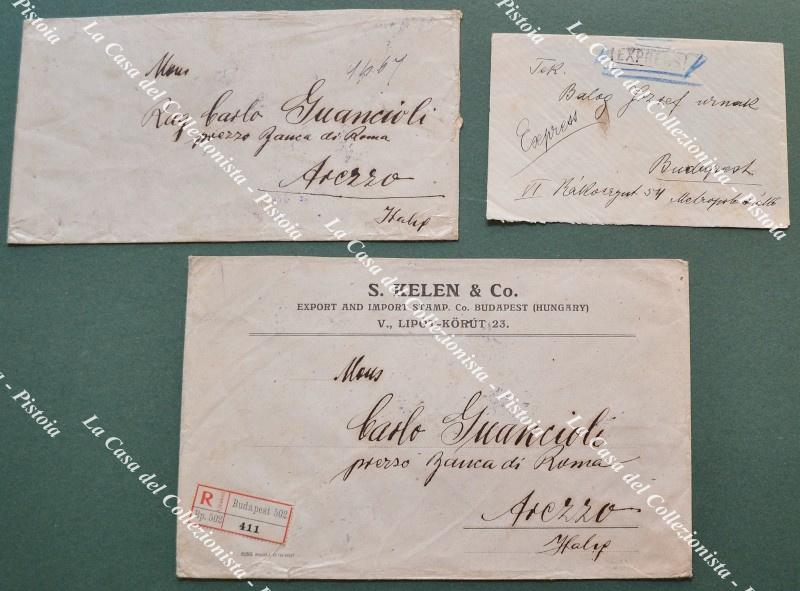 Mons
4667
Rag Carlo Guancioli
presso Banca di Roma
Arezzo
Italy
EXPRESS
Tek.
Balog József urnak
Express
Budapest
VI Rákóczyut 54 Metropole száll
S. KELEN & Co.
EXPORT AND IMPORT STAMP. Co. BUDAPEST (HUNGARY)
V., LIPÓT-KÖRÚT 23.
Mons
Carlo Guancioli
presso Banca di Roma
Arezzo
Italy
R
Budapest 502
Bp. 502
411
La Casa del Collezionista - Pistoia